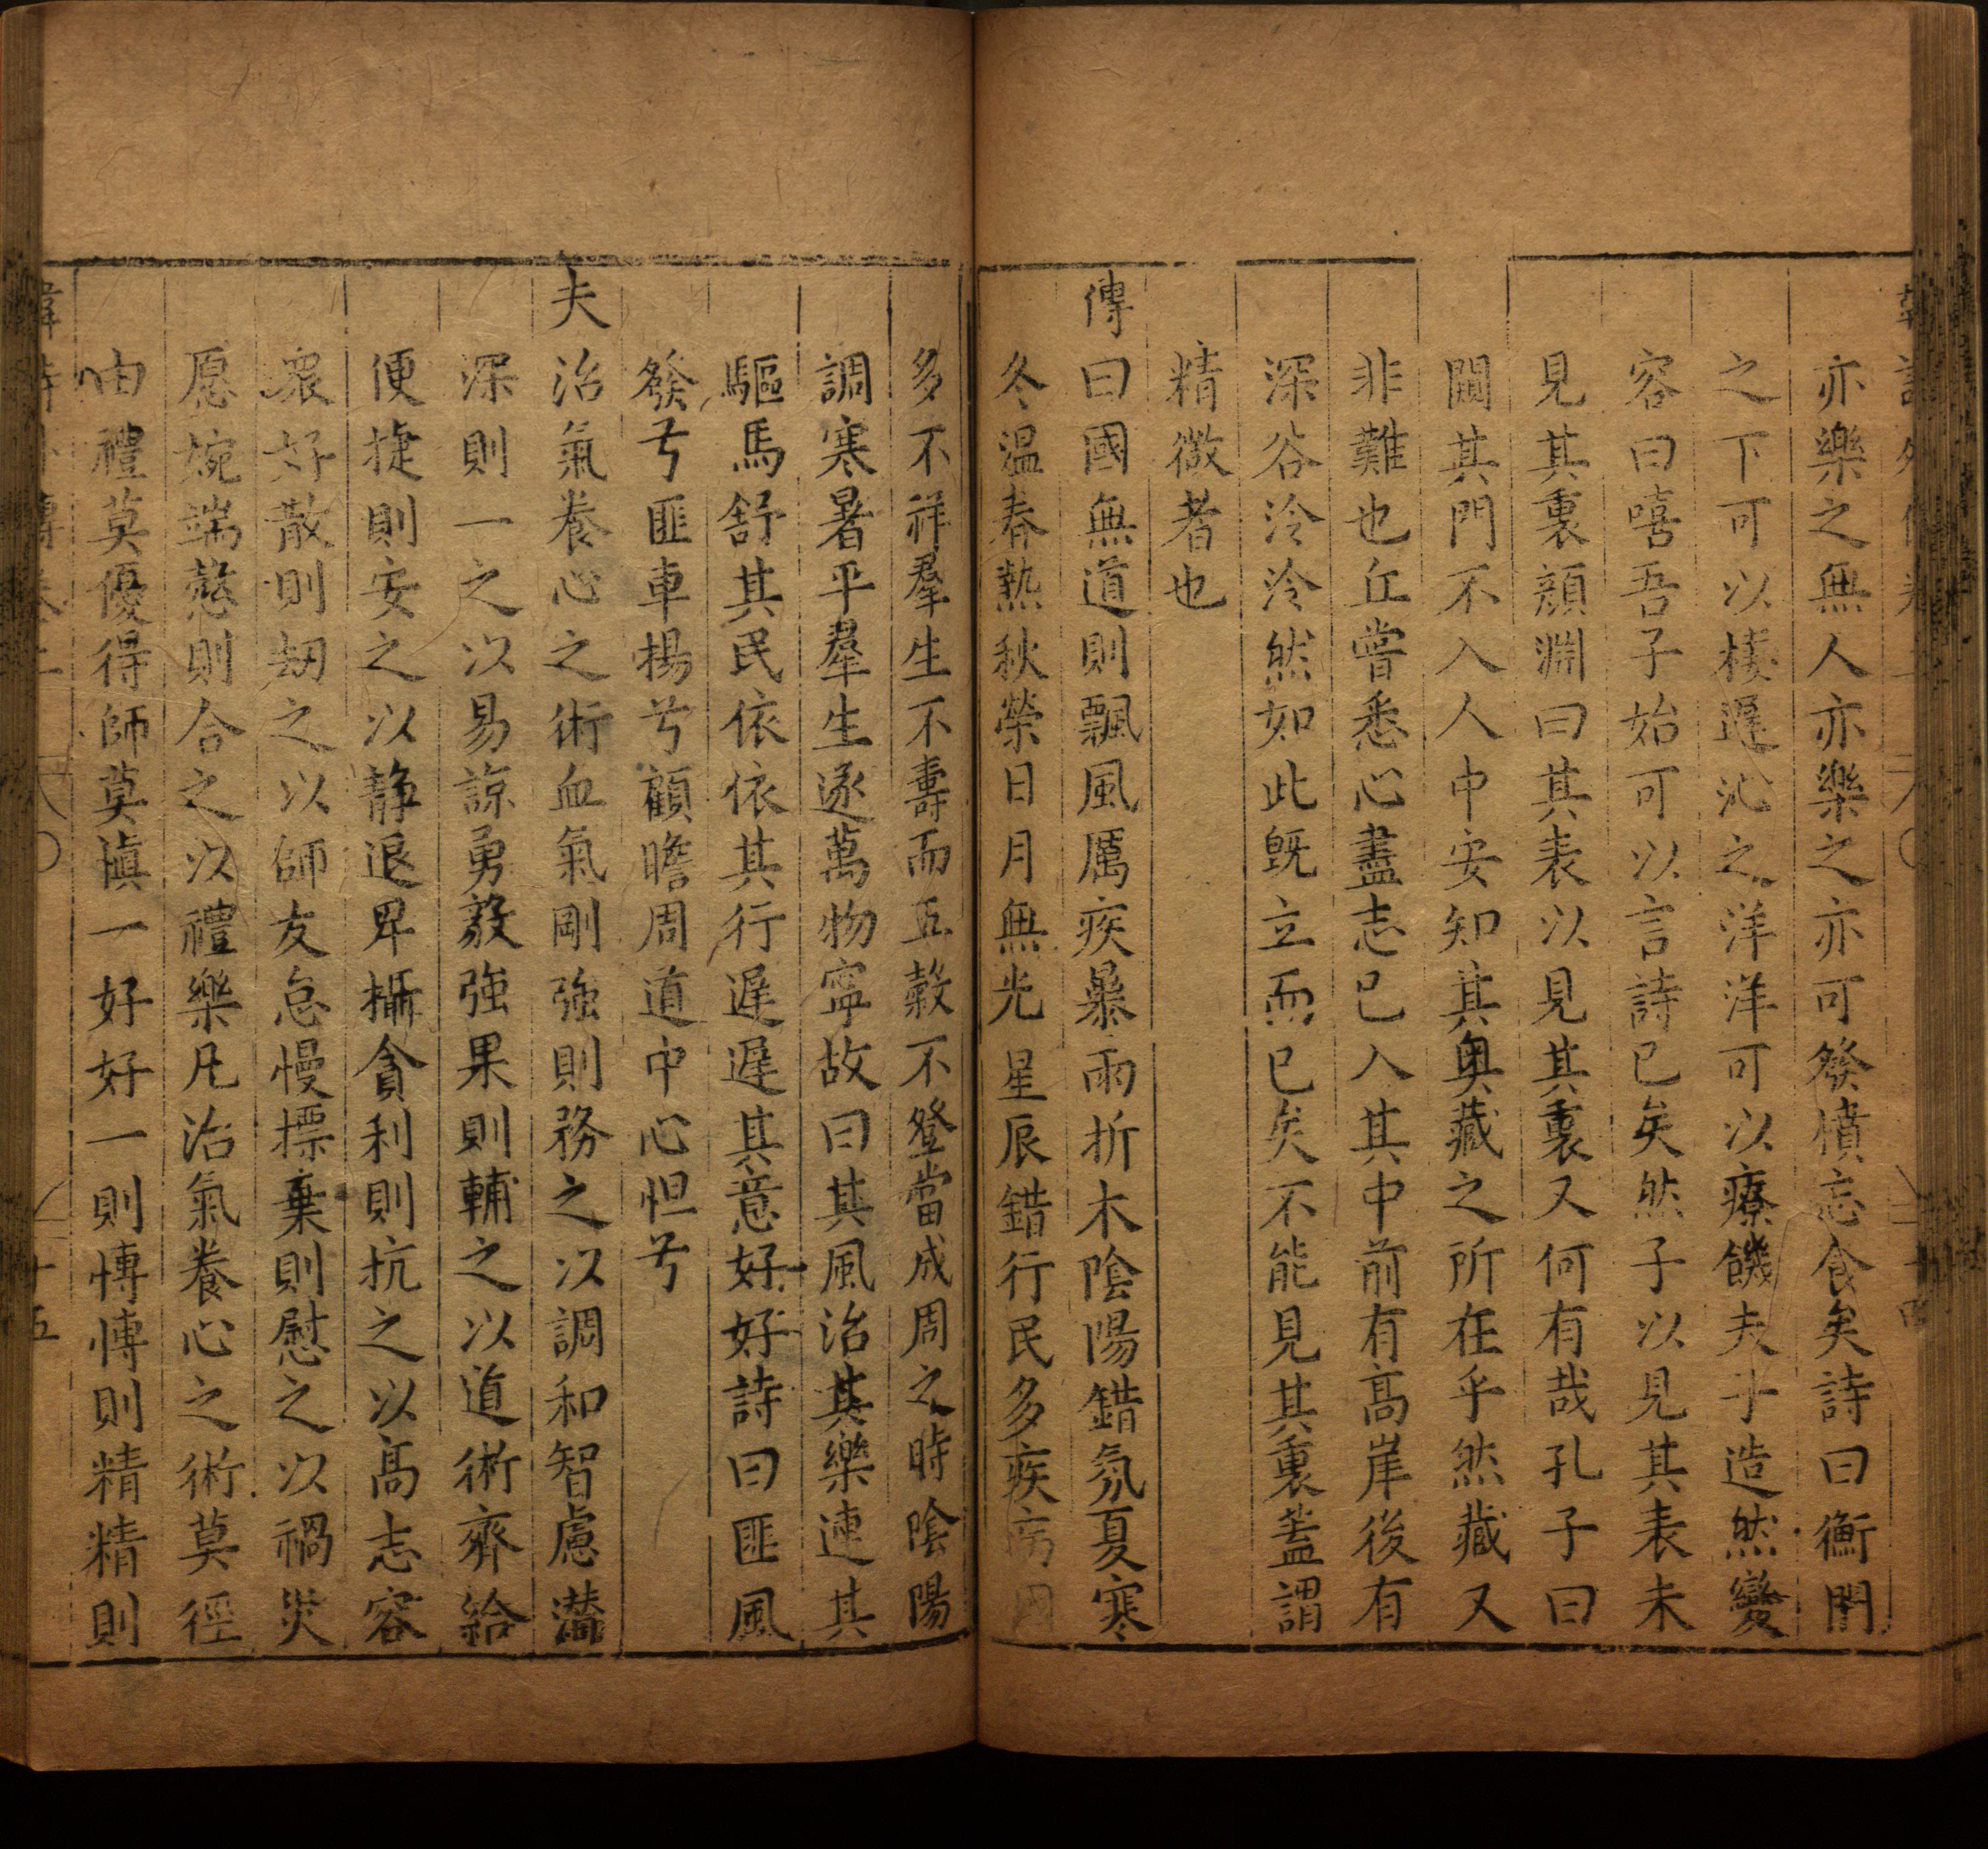 亦樂之無人亦樂之亦可發憤忘食矣詩曰衡門
之下可以棲遲泌之洋洋可以療饑夫子造然變
容曰嘻吾子始可以言詩已矣然子以見其表未
見其裏顔淵曰其表以見其裏又何有哉孔子曰
闚其門不入人中安知其奥藏之所在乎然藏又
非難也丘嘗悉心盡志已入其中前有高崖後有
深谷泠泠然如此旣立而已矣不能見其裏蓋謂
精微者也
傳曰國無道則飄風厲疾暴雨折木陰陽錯氛夏寒
冬温春熱秋榮日月無光星辰錯行民多疾病國
多不祥羣生不壽而五穀不登當成周之時陰陽
調寒暑平羣生遂萬物寧故曰其風治其樂連其
驅馬舒其民依依其行遲遲其意好好詩曰匪風
發兮匪車揭兮顧瞻周道中心怛兮
夫治氣養心之術血氣剛強則務之以調和智慮潛
深則一之以易諒勇毅強果則輔之以道術齊給
便捷則安之以静退卑攝貪利則抗之以高志容
衆好散則劫之以師友怠慢摽棄則慰之以禍災
愿婉端慤則合之以禮樂凡治氣養心之術莫徑
由禮莫優得師莫愼一好好一則愽愽則精精則
韓詩外傳卷二
十五